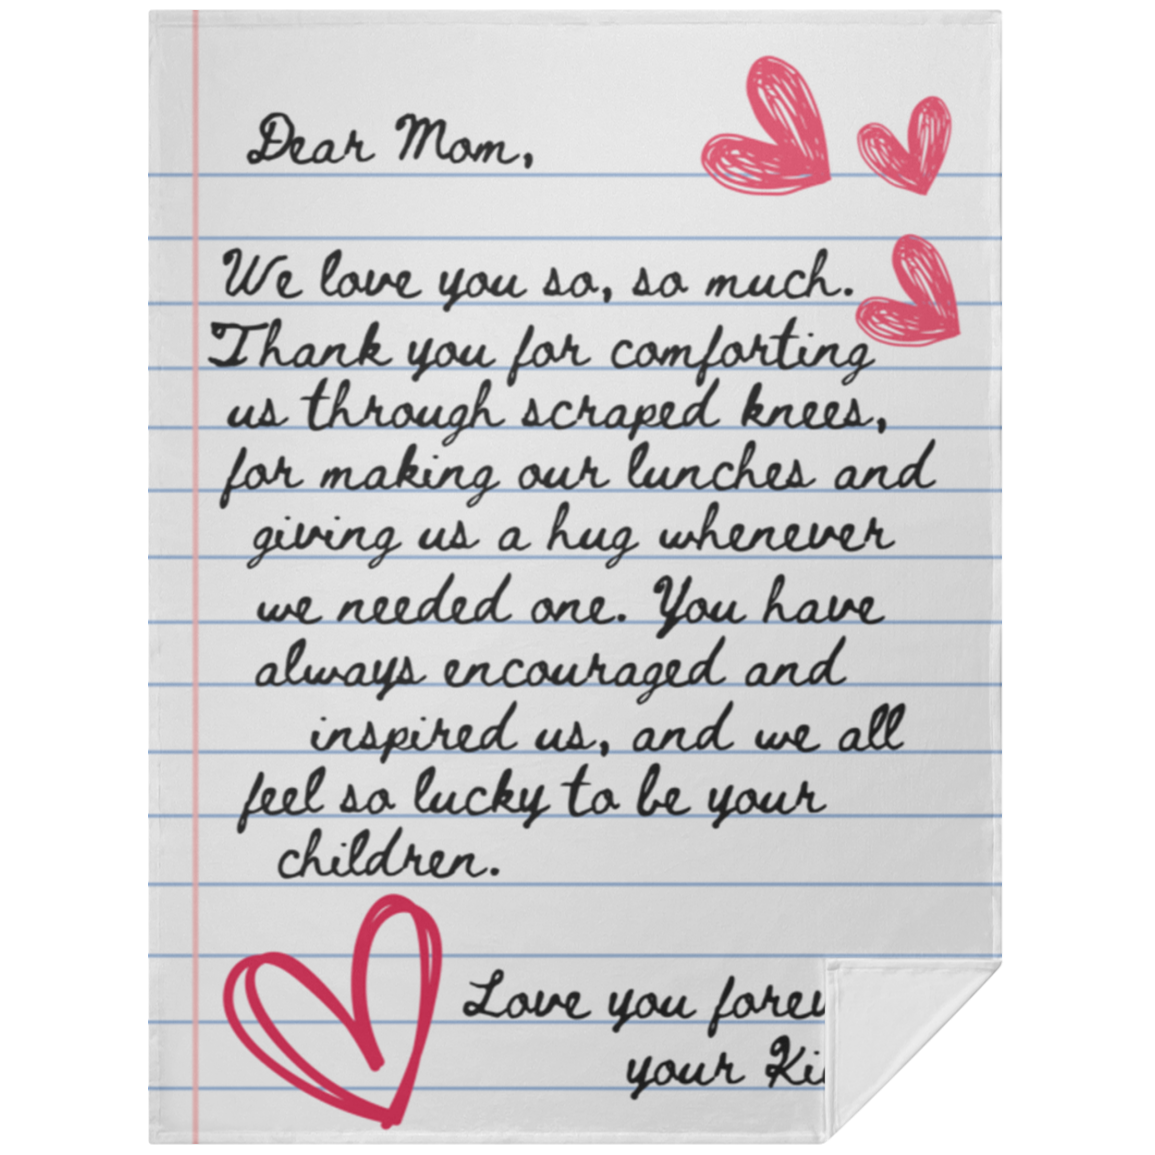 Dear Mom,
We love you so, so much.
Thank you for comforting
us through scraped knees,
for making our lunches and
giving us a hug whenever
we needed one. You have
always encouraged and
inspired us, and we all
feel so lucky to be your
children.
Love you
your